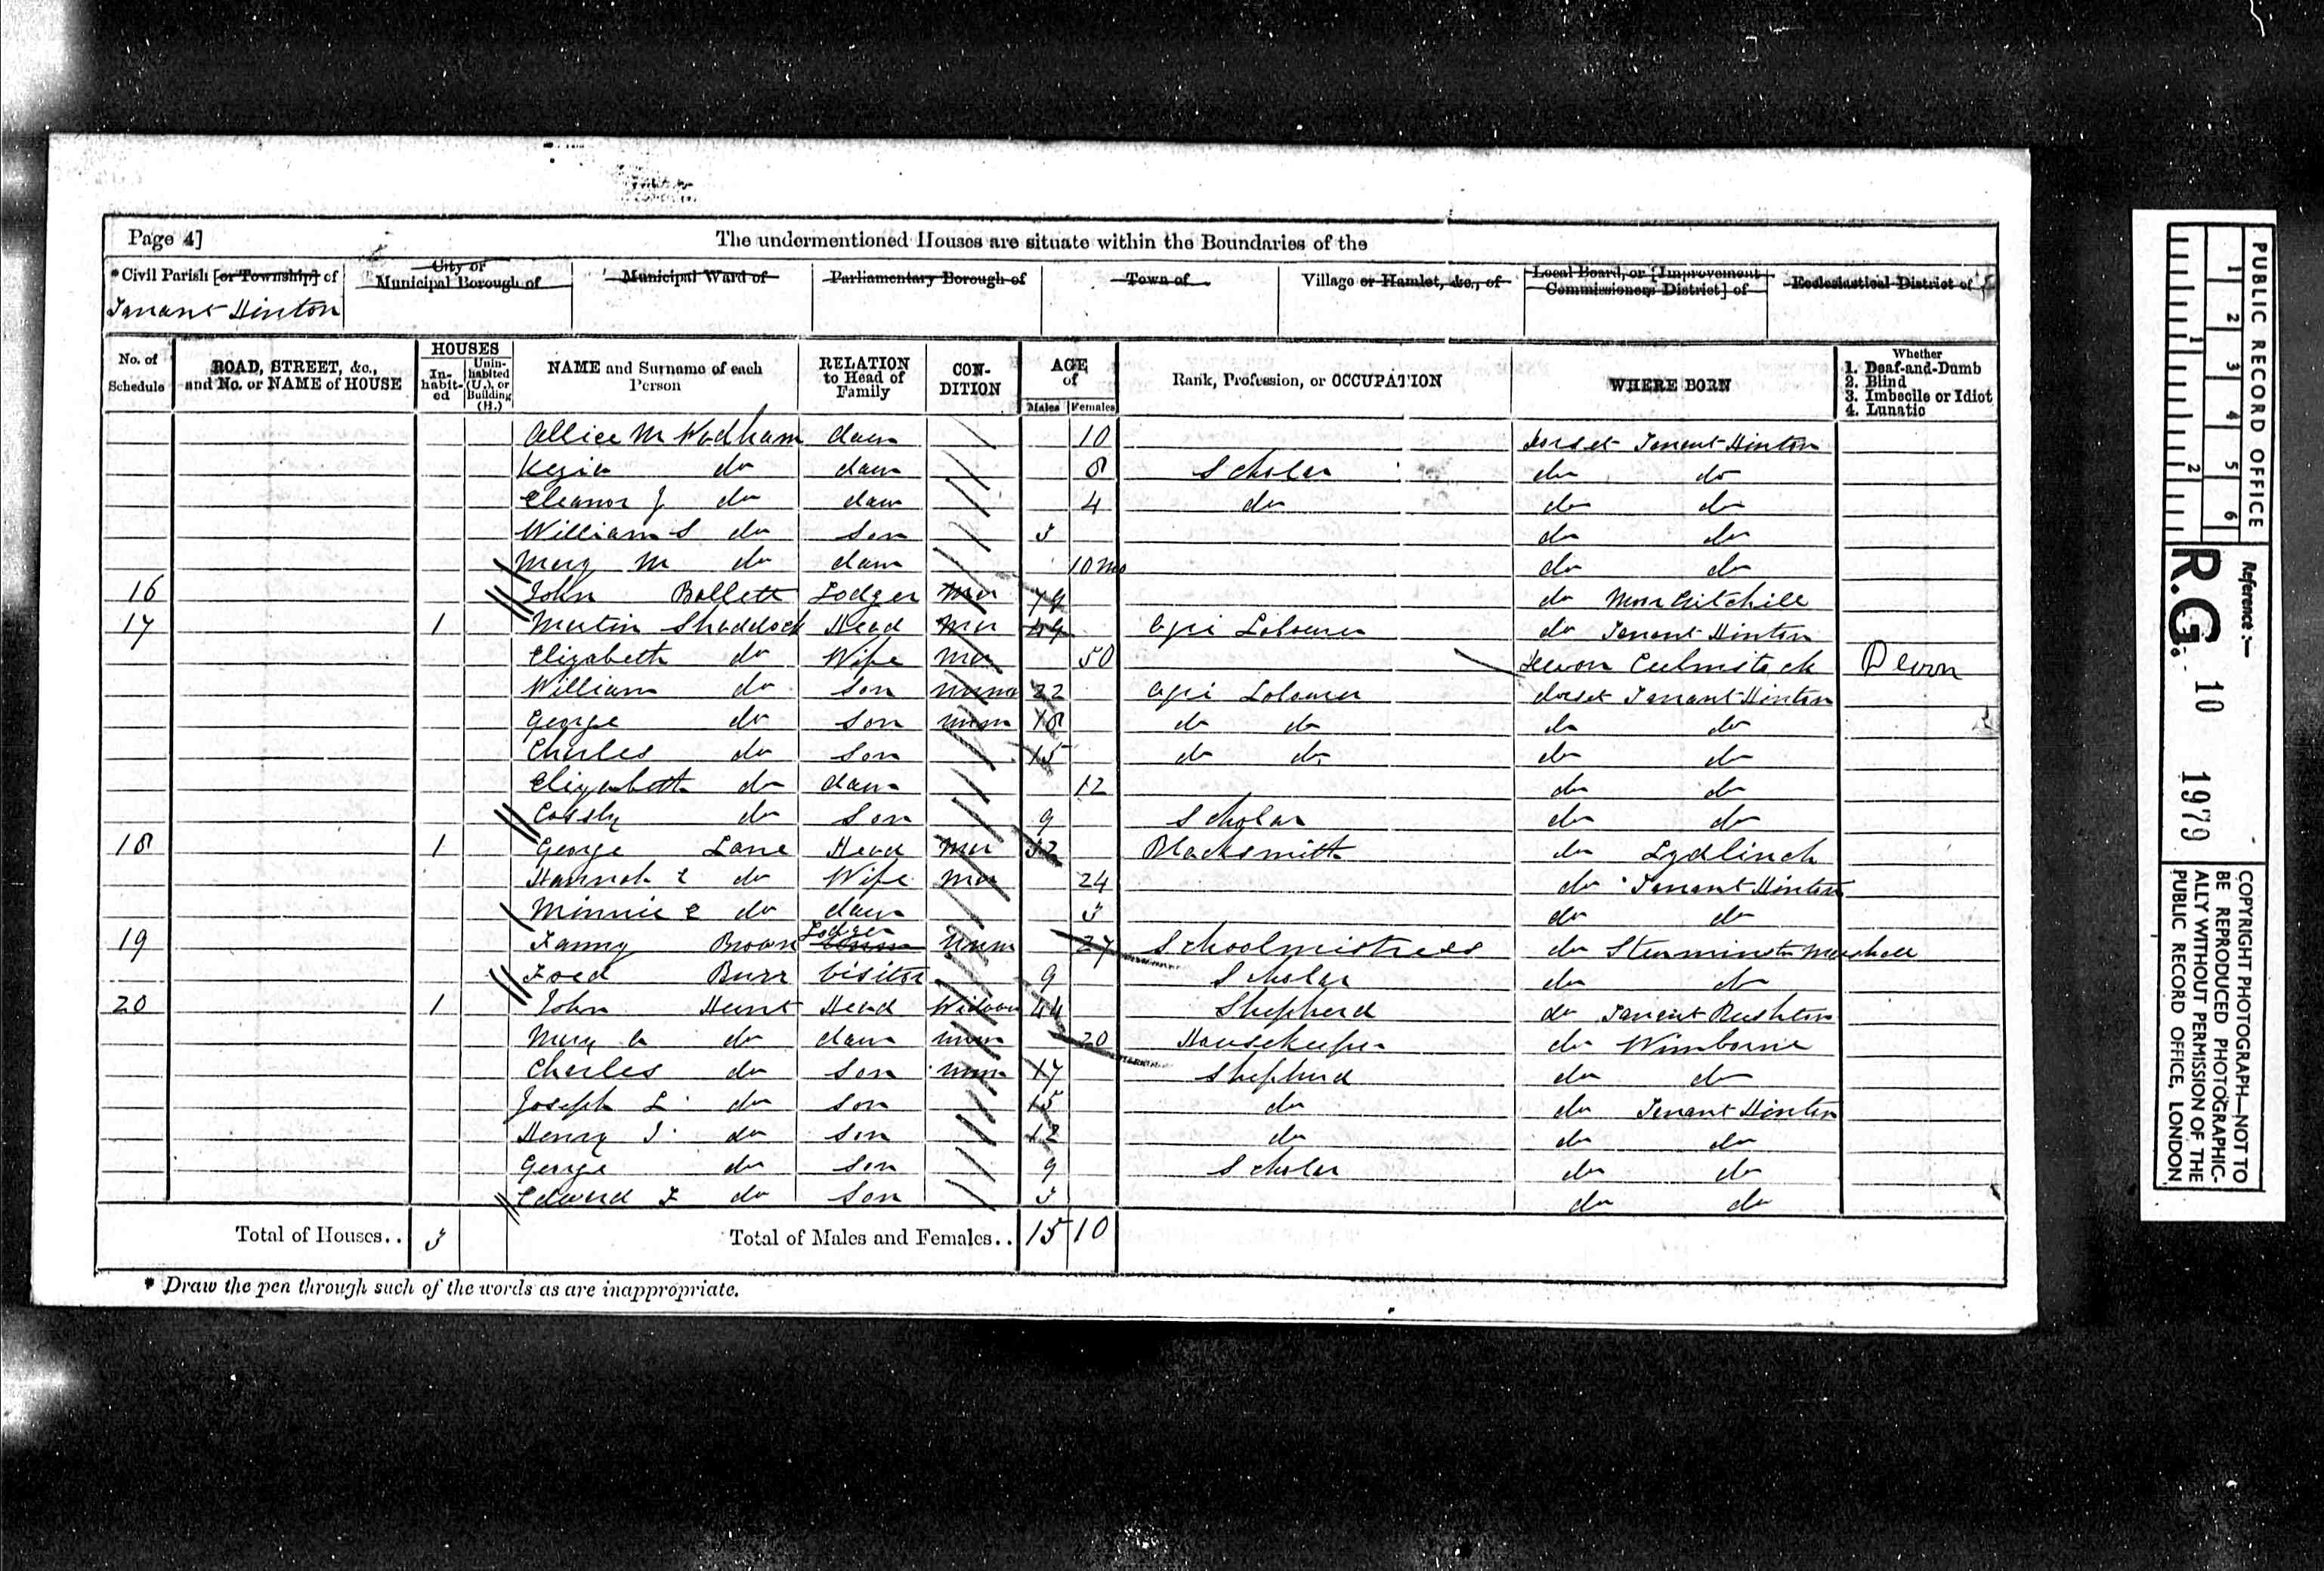 Page 4]
The undermentioned Houses are situate within the Boundaries of the
*Civil Parish [or Township] of
City or Municipal Borough of
Municipal Ward of
Parliamentary Borough of
Town of
Village or Hamlet, &c., of
Local Board, or [Improvement Commissioners District] of
Ecclesiastical District of
Tarrant Hinton
No. of Schedule
ROAD, STREET, &c., and No. or NAME of HOUSE
HOUSES
In-habit-ed
Unin-habited (U.), or Building (B.)
NAME and Surname of each Person
RELATION to Head of Family
CON-DITION
AGE of
Males
Females
Rank, Profession, or OCCUPATION
WHERE BORN
Whether
1. Deaf-and-Dumb
2. Blind
3. Imbecile or Idiot
4. Lunatic
Allice M Wadham daur 10 Dorset Tarrant Hinton
Kezia do daur 8 Scholar do do
Eleanor J do daur 4 do do do
William S do son 3 do do
Mary M do daur 10 mo do do
16 John Bollett Lodger Mar 79 do Moor Critchill
17 1 Martin Shaddock Head Mar 49 Agri Labourer do Tarrant Hinton
Elizabeth do Wife Mar 50 Devon Culmstock Devon
William do son unm 22 Agri Labourer dorset Tarrant Hinton
George do son unm 18 do do do do
Charles do son 15 do do do do
Elizabeth do daur 12 do do
do Son 9 Scholar do do
18 1 George Lane Head Mar 32 Blacksmith do Lydlinch
Hannah E do Wife Mar 24 do Tarrant Hinton
Minnie E do daur 3 do do
19 Fanny Brown Lodger Unm 27 Schoolmistress do Sturminster Marshall
Burr Visitor 9 Scholar do do
20 1 John Hunt Head Widower 44 Shepherd do Tarrant Rushton
Mary A do daur unm 20 Housekeeper do Wimborne
Charles do Son unm 17 Shepherd do do
Joseph L do son 15 do do Tarrant Hinton
Henry J do son 12 do do do
George do son 9 Scholar do do
Edward F do Son 3 do do
Total of Houses.. 3
Total of Males and Females.. 15 10
* Draw the pen through such of the words as are inappropriate.
PUBLIC RECORD OFFICE
1 2 3 4 5 6
1 2
Reference :—
R.G. 10 1979
COPYRIGHT PHOTOGRAPH—NOT TO
BE REPRODUCED PHOTOGRAPHIC-
ALLY WITHOUT PERMISSION OF THE
PUBLIC RECORD OFFICE, LONDON